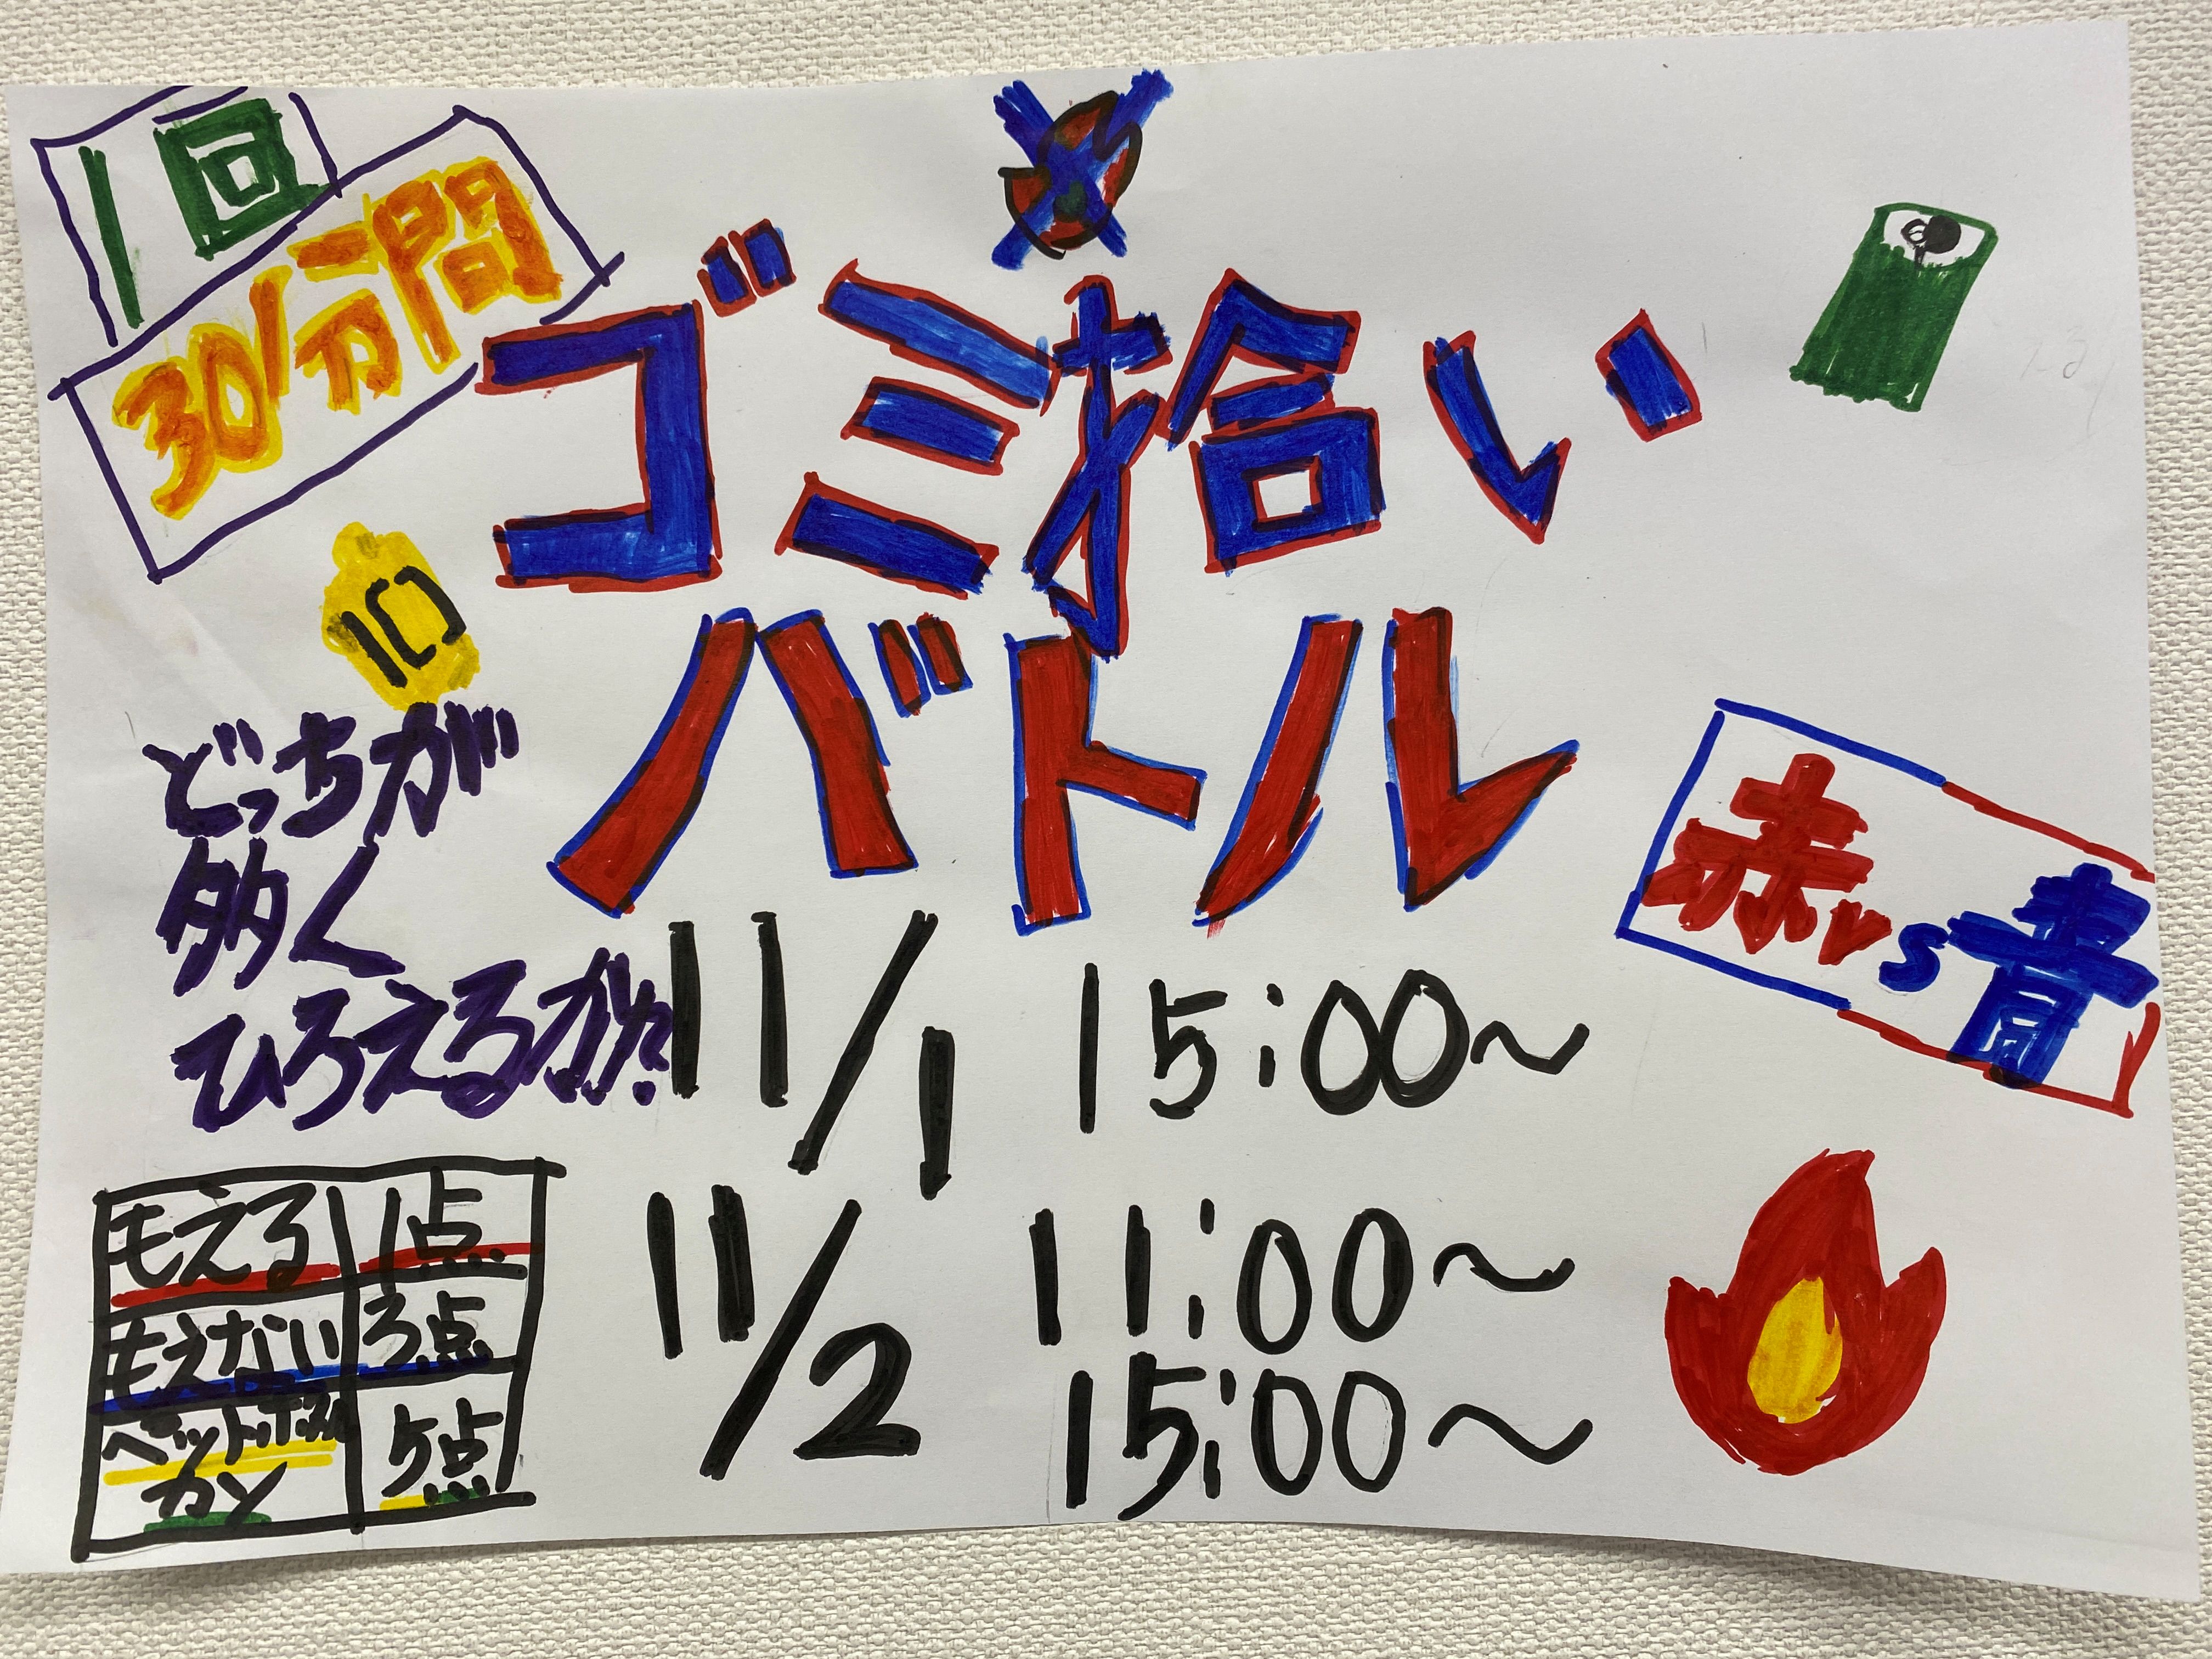 1回
30分間
ゴミ拾い
バトル
10
どっちが
多く
ひろえるか?
赤vs青
11/1 15:00～
11/2 11:00～
15:00～
もえる 1点
もえない 3点
ペットボトル
カン 5点